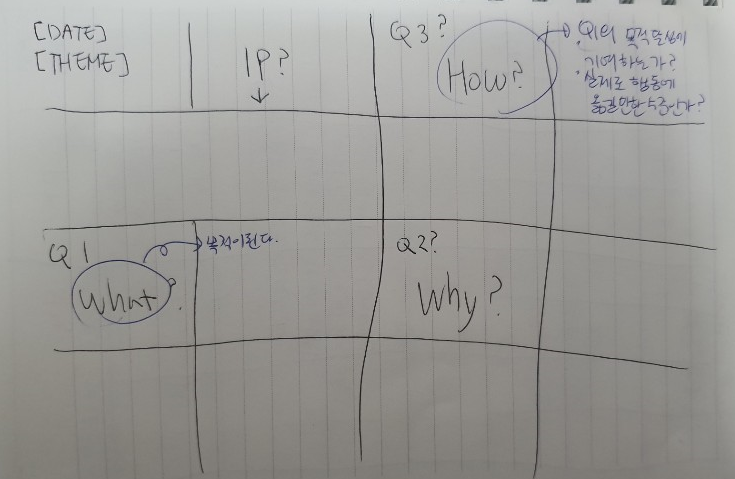 [DATE]
[THEME]
1P?
↓
Q3?
How?
· Q1의 목적달성에
기여하는가?
· 실제로 행동에
옮길만한 수준인가?
Q1
What?
목적이된다.
Q2?
Why?